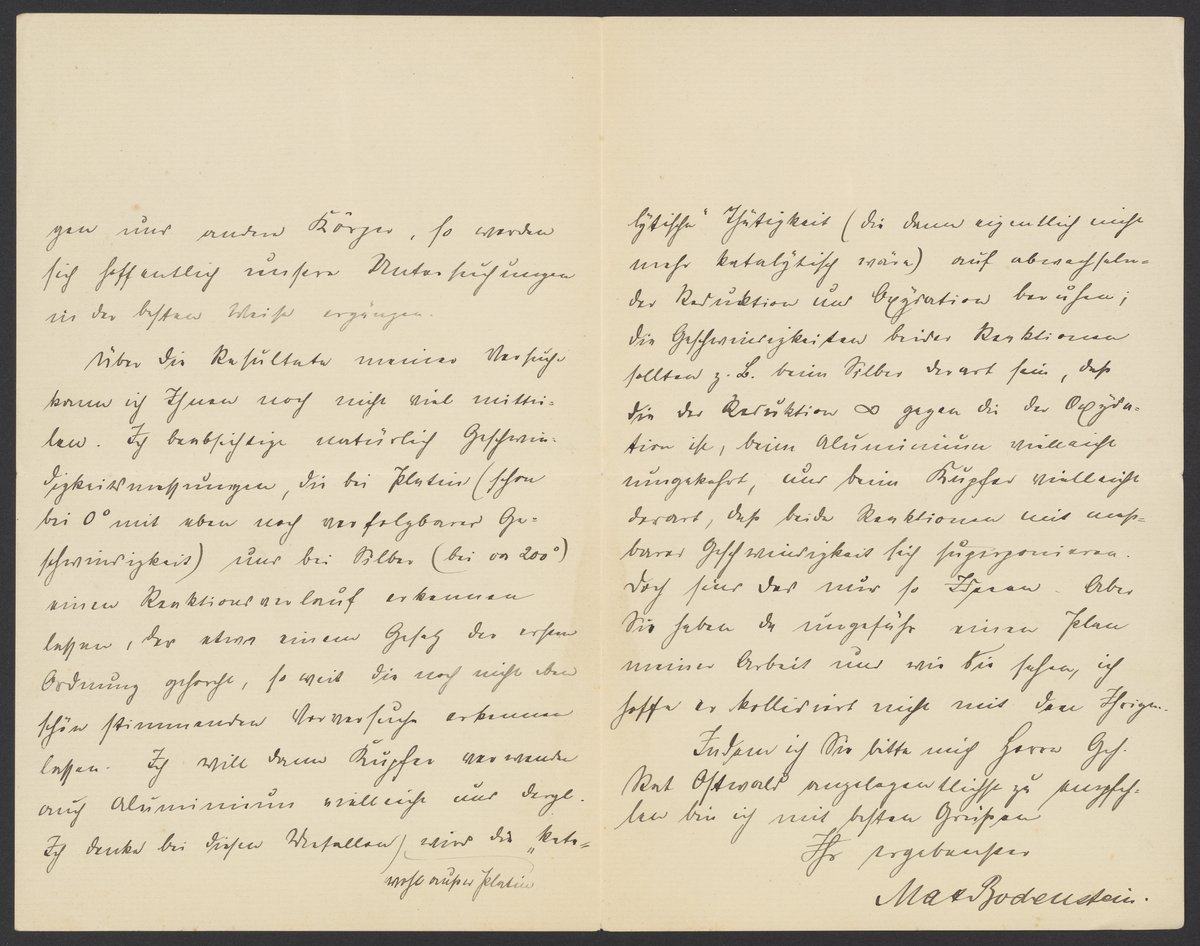 gen und andere Körper, so werden
sich hoffentlich unsere Untersuchungen
in der besten Weise ergänzen.
Über die Resultate meiner Versuche
kann ich Ihnen noch nicht viel mittei-
len. Ich beabsichtige natürlich Geschwin-
digkeitsmessungen, die bei Platin (schon
bei 0° mit eben noch verfolgbarer Ge-
schwindigkeit) und bei Silber (bei ca 200°)
einen Reaktionsverlauf erkennen
lassen, der etwa einem Gesetz der ersten
Ordnung gehorcht, so weit die noch nicht eben
schön stimmenden Vorversuche erkennen
lassen. Ich will dann Kupfer verwenden
auch Aluminium vielleicht und dergl.
Ich denke bei diesen Metallen) wird die „kata-
wohl außer Platin
lytische“ Thätigkeit (die dann eigentlich nicht
mehr katalytisch wäre) auf abwechseln-
der Reduktion und Oxydation beruhen;
die Geschwindigkeiten beider Reaktionen
sollten z. B. beim Silber derart sein, daß
die der Reduktion ∞ gegen die der Oxyda-
tion ist, beim Aluminium vielleicht
umgekehrt, und beim Kupfer vielleicht
derart, daß beide Reaktionen mit mess-
barer Geschwindigkeit sich superponieren.
Doch sind das nur so Ideen. Aber
Sie haben da ungefähr einen Plan
meiner Arbeit und wie Sie sehen, ich
hoffe er kollidiert nicht mit dem Ihrigen.
Indem ich Sie bitte mich Herrn Geh.
Rat Ostwald angelegentlichst zu empfeh-
len bin ich mit besten Grüßen
Ihr ergebenster
Max Bodenstein.